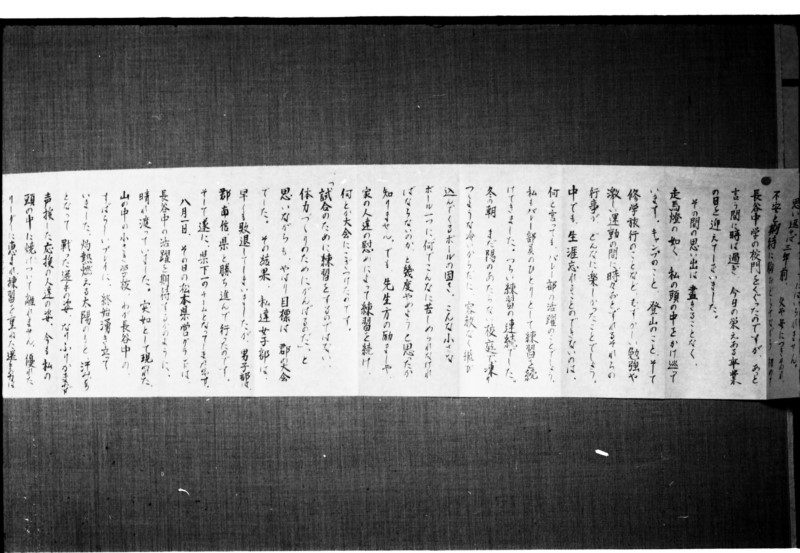 思い返せば三年前 父や母につれられ
不安と期待に胸を
長谷中学の校門をくぐったのですが、あと
言う間に時は過ぎ、今日の栄えある卒業
の日を迎えてしまいました。
その間の思い出は、尽きることなく、
走馬燈の如く、私の頭の中をかけ巡って
います。キャンプのこと、登山のこと、そして
修学旅行のことなど、むずかしい勉強や
激しい運動の間に時々おとずれるそれらの
行事が、どんなに楽しかったことでしょう。
中でも、生涯忘れることのできないのは、
何と言っても、バレー部の活躍のことでしょう。
私もバレー部員のひとりとして練習を続
けてきました。つらい練習の連続でした。
冬の朝、まだ陽のあたらない校庭で凍り
つくような冷たがった。容赦なく頬が
込んでくるボールの固さ、こんな小さな
ボール一つに何でこんなに苦しめられなけれ
ばならないのか、と幾度やめようと思ったか
知りません。でも、先生方の励ましや
家の人達の慰めによって練習を続け
何とか大会にこぎつけたのです。
「試合のために練習をするのではない、
体力づくりのためにするんだ」と
思いながらも、やはり目標は、郡大会
でした。その結果、私達女子部は、
早くも敗退してしまいましたが、男子部は
郡、南信、県と勝ち進んで行ったのです。
そして遂に、県下一のチームとなってしまったのです。
八月一日、その日の松本県営グランドは
長谷中の活躍を期待するかのように、
晴れ渡っていました。実如として現われた
山の中の小さな学校、わが長谷中の、
すばらしいプレイに、終始湧き立って
いました。灼熱燃える太陽のもと、汗
となって戦った選手の姿、
声援した応援の人達の姿、今も私の
頭の中に焼きついて離れません。優勝
練習を重ねた選手